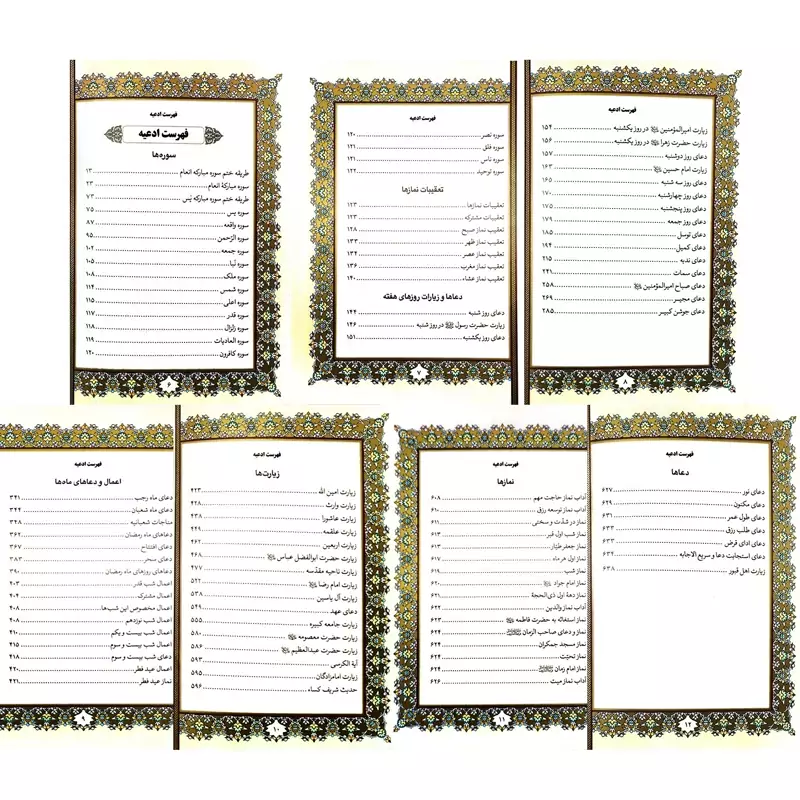 فهرست ادعیه
فهرست ادعیه
سوره‌ها
طریقه ختم سوره مبارکه انعام ۱۳
سوره مبارکهٔ انعام ۲۳
طریقه ختم سوره مبارکه یٰس ۷۳
سوره یس ۷۵
سوره واقعه ۸۷
سوره الرّحمن ۹۵
سوره جمعه ۱۰۲
سوره نَبأ ۱۰۵
سوره ملک ۱۰۸
سوره شمس ۱۱۴
سوره اعلی ۱۱۵
سوره قدر ۱۱۷
سوره زلزال ۱۱۸
سوره العادیات ۱۱۹
سوره کافرون ۱۲۰
۶
فهرست ادعیه
سوره نصر ۱۲۰
سوره فلق ۱۲۱
سوره ناس ۱۲۱
سوره توحید ۱۲۲
تعقیبات نمازها
تعقیبات نمازها ۱۲۳
تعقیبات مشترکه ۱۲۳
تعقیب نماز صبح ۱۲۸
تعقیب نماز ظهر ۱۳۳
تعقیب نماز عصر ۱۳۴
تعقیب نماز مغرب ۱۳۶
تعقیب نماز عشاء ۱۴۰
دعاها و زیارات روزهای هفته
دعای روز شنبه ۱۴۴
زیارت حضرت رسول ﷺ در روز شنبه ۱۴۶
دعای روز یکشنبه ۱۵۱
۷
فهرست ادعیه
زیارت امیرالمؤمنین در روز یکشنبه ۱۵۴
زیارت حضرت زهرا در روز یکشنبه ۱۵۶
دعای روز دوشنبه ۱۵۷
زیارت امام حسین ۱۶۳
دعای روز سه شنبه ۱۶۵
دعای روز چهارشنبه ۱۷۰
دعای روز پنجشنبه ۱۷۵
دعای روز جمعه ۱۷۹
دعای توسل ۱۸۵
دعای کمیل ۱۹۴
دعای ندبه ۲۱۵
دعای سمات ۲۴۱
دعای صباح امیرالمؤمنین ۲۵۸
دعای مجیر ۲۶۹
دعای جوشن کبیر ۲۸۵
۸
فهرست ادعیه
اعمال و دعاهای ماه‌ها
دعای ماه رجب ۳۴۱
دعای ماه شعبان ۳۴۴
مناجات شعبانیه ۳۴۸
دعاهای ماه رمضان ۳۶۲
دعای افتتاح ۳۶۷
دعای سحر ۳۸۳
دعاهای روزهای ماه رمضان ۳۹۰
اعمال شب قدر ۴۰۳
اعمال مشترک ۴۰۴
اعمال مخصوص این شب‌ها ۴۰۸
اعمال شب نوزدهم ۴۰۸
اعمال شب بیست و یکم ۴۱۰
اعمال شب بیست و سوم ۴۱۵
دعای شب بیست و سوم ۴۱۸
اعمال عید فطر ۴۲۰
نماز عید فطر ۴۲۱
۹
فهرست ادعیه
زیارت‌ها
زیارت امین الله ۴۲۳
زیارت وارث ۴۲۸
زیارت عاشورا ۴۳۸
زیارت علقمه ۴۴۹
زیارت اربعین ۴۶۲
زیارت حضرت ابوالفضل عباس ۴۶۸
زیارت ناحیه مقدّسه ۴۷۷
زیارت امام رضا ۵۲۲
زیارت آل یاسین ۵۳۸
دعای عهد ۵۴۹
زیارت جامعه کبیره ۵۵۵
زیارت حضرت معصومه ۵۸۰
زیارت حضرت عبدالعظیم ۵۸۶
آیة الکرسی ۵۹۳
زیارت امامزادگان ۵۹۵
حدیث شریف کساء ۵۹۶
۱۰
فهرست ادعیه
نمازها
آداب نماز حاجت مهم ۶۰۸
آداب نماز توسعه رزق ۶۱۰
نماز در شدّت و سختی ۶۱۱
نماز شب اول قبر ۶۱۳
نماز جعفر طیّار ۶۱۳
نماز اول هر ماه ۶۱۷
نماز شب ۶۱۹
نماز امام جواد ۶۲۰
نماز دههٔ اول ذی‌الحجة ۶۲۱
آداب نماز والدین ۶۲۲
نماز استغاثه به حضرت فاطمه ۶۲۳
نماز و دعای صاحب الزمان ۶۲۴
نماز مسجد جمکران ۶۲۴
نماز تحیّت ۶۲۴
نماز امام زمان ۶۲۴
آداب نماز میت ۶۲۶
۱۱
فهرست ادعیه
دعاها
دعای نور ۶۲۷
دعای مکنون ۶۲۹
دعای طول عمر ۶۳۱
دعای طلب رزق ۶۳۳
دعای ادای قرض ۶۳۳
دعای استجابت دعا و سریع الاجابه ۶۳۴
زیارت اهل قبور ۶۳۸
۱۲